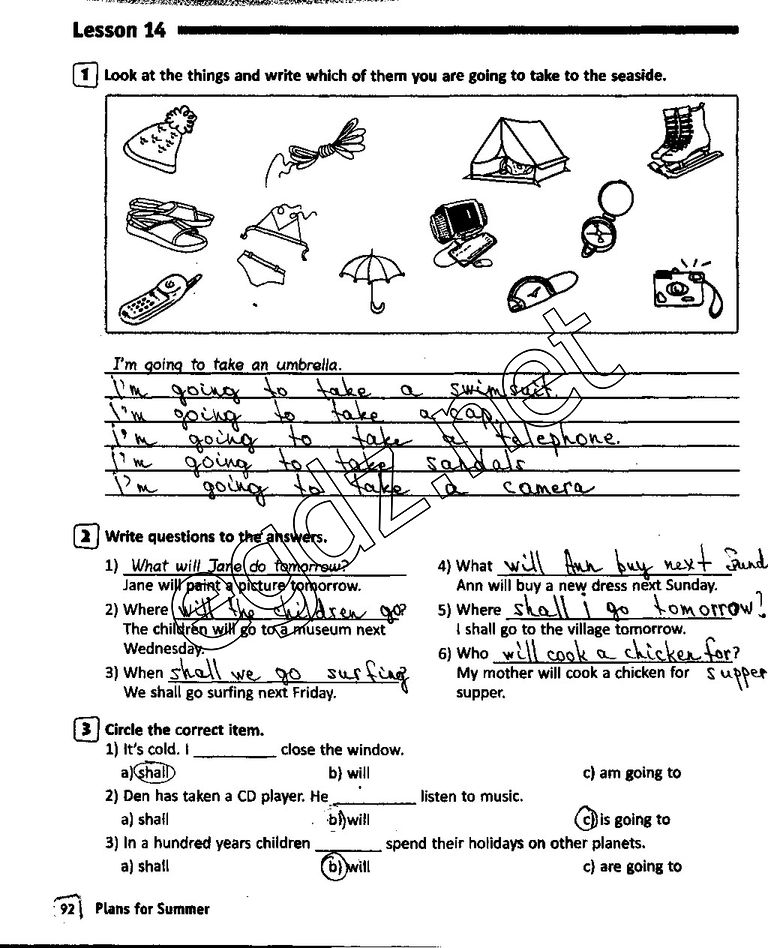 Lesson 14
1 Look at the things and write which of them you are going to take to the seaside.
I'm going to take an umbrella.
I'm going to take a swimsuit.
I'm going to take a cap.
I'm going to take a telephone.
I'm going to take sandals
I'm going to take a camera
egdz.net
2 Write questions to the answers.
1) What will Jane do tomorrow?
Jane will paint a picture tomorrow.
2) Where will the children go?
The children will go to a museum next
Wednesday.
3) When shall we go surfing?
We shall go surfing next Friday.
4) What will Ann buy next Sund
Ann will buy a new dress next Sunday.
5) Where shall I go tomorrow?
I shall go to the village tomorrow.
6) Who will cook a chicken for?
My mother will cook a chicken for supper
supper.
3 Circle the correct item.
1) It's cold. I __________ close the window.
a) shall b) will c) am going to
2) Den has taken a CD player. He __________ listen to music.
a) shall b) will c) is going to
3) In a hundred years children ________ spend their holidays on other planets.
a) shall b) will c) are going to
92 Plans for Summer